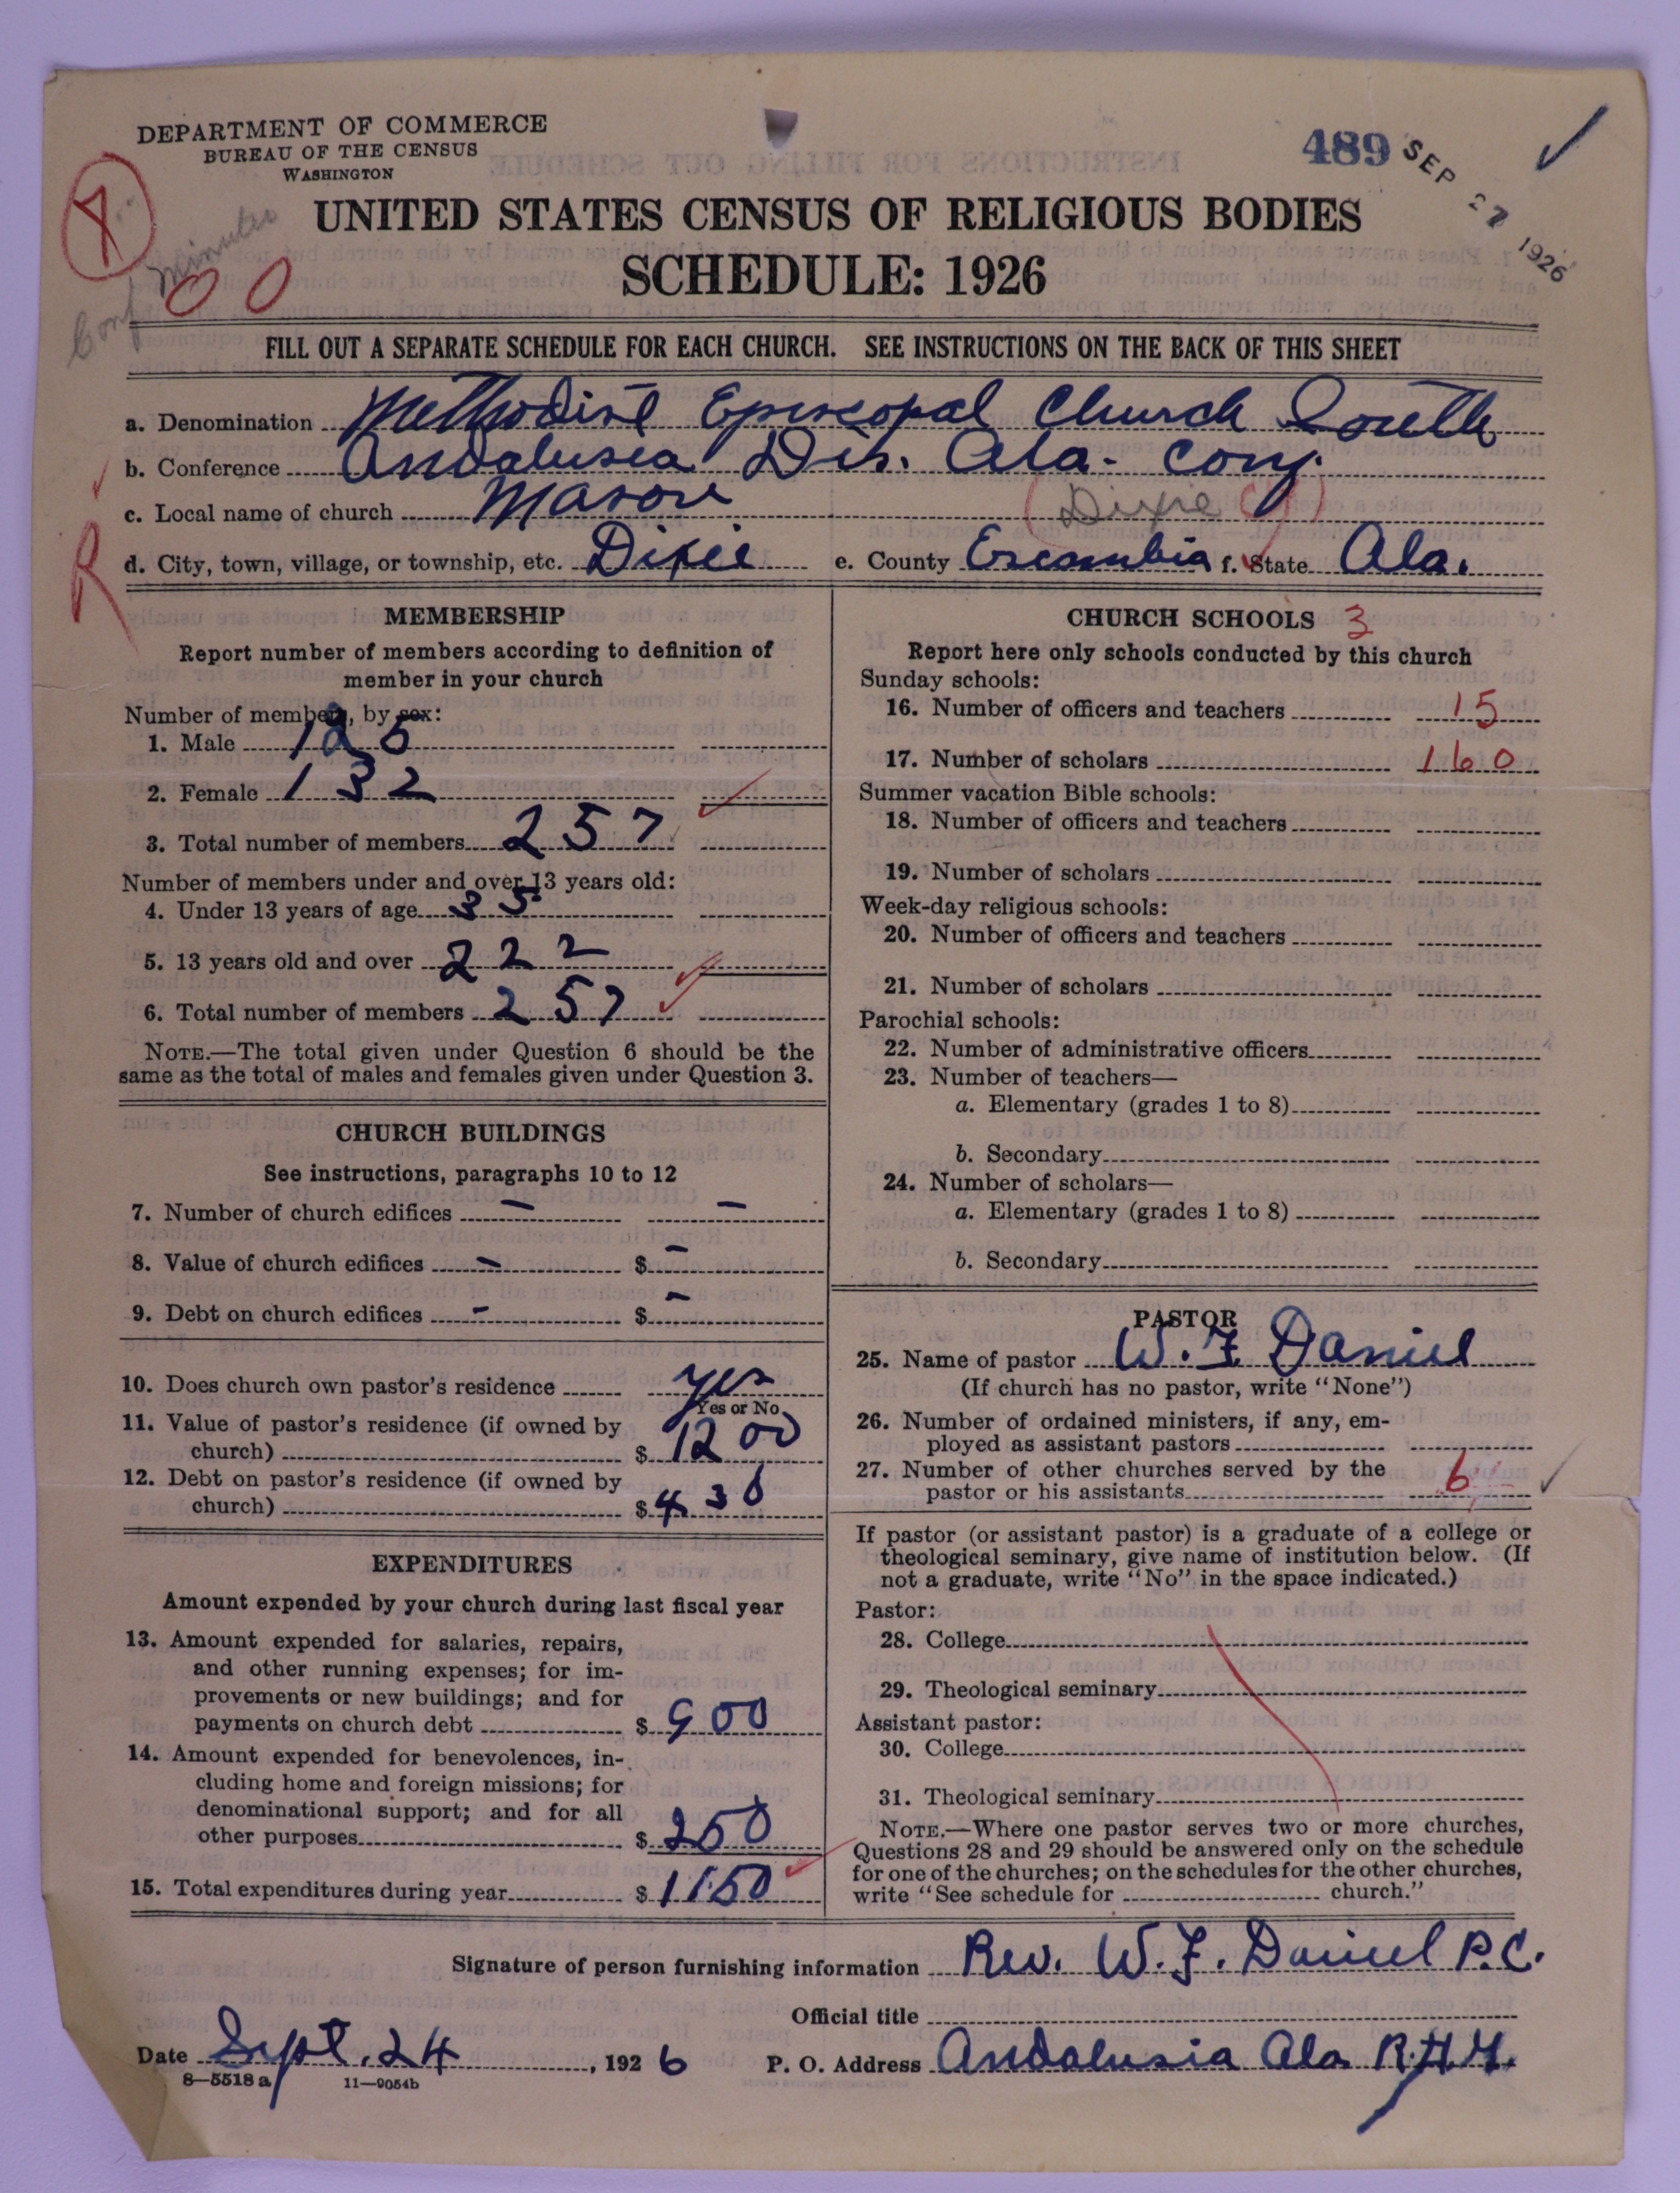 DEPARTMENT OF COMMERCE
BUREAU OF THE CENSUS
WASHINGTON
489 SEP 27 1926
Conf Minutes
00
UNITED STATES CENSUS OF RELIGIOUS BODIES
SCHEDULE: 1926
FILL OUT A SEPARATE SCHEDULE FOR EACH CHURCH. SEE INSTRUCTIONS ON THE BACK OF THIS SHEET
a. Denomination Methodist Episcopal Church South
b. Conference Andalusia Dis. Ala. Conf.
c. Local name of church Mason (Dixie
R
d. City, town, village, or township, etc. Dixie e. County Escambia f. State Ala.
MEMBERSHIP
Report number of members according to definition of
member in your church
Number of members, by sex:
1. Male 125
2. Female 132
3. Total number of members 257
Number of members under and over 13 years old:
4. Under 13 years of age 35
5. 13 years old and over 222
6. Total number of members 257
NOTE.—The total given under Question 6 should be the
same as the total of males and females given under Question 3.
CHURCH BUILDINGS
See instructions, paragraphs 10 to 12
7. Number of church edifices - -
8. Value of church edifices - $ -
9. Debt on church edifices - $ -
10. Does church own pastor's residence yes
Yes or No
11. Value of pastor's residence (if owned by
church) $ 1200
12. Debt on pastor's residence (if owned by
church) $ 430
EXPENDITURES
Amount expended by your church during last fiscal year
13. Amount expended for salaries, repairs,
and other running expenses; for im-
provements or new buildings; and for
payments on church debt $ 900
14. Amount expended for benevolences, in-
cluding home and foreign missions; for
denominational support; and for all
other purposes $ 250
15. Total expenditures during year $ 1150
CHURCH SCHOOLS 3
Report here only schools conducted by this church
Sunday schools:
16. Number of officers and teachers 15
17. Number of scholars 160
Summer vacation Bible schools:
18. Number of officers and teachers
19. Number of scholars
Week-day religious schools:
20. Number of officers and teachers
21. Number of scholars
Parochial schools:
22. Number of administrative officers
23. Number of teachers—
a. Elementary (grades 1 to 8)
b. Secondary
24. Number of scholars—
a. Elementary (grades 1 to 8)
b. Secondary
PASTOR
25. Name of pastor W. F Daniel
(If church has no pastor, write "None")
26. Number of ordained ministers, if any, em-
ployed as assistant pastors
27. Number of other churches served by the
pastor or his assistants 6
If pastor (or assistant pastor) is a graduate of a college or
theological seminary, give name of institution below. (If
not a graduate, write "No" in the space indicated.)
Pastor:
28. College
29. Theological seminary
Assistant pastor:
30. College
31. Theological seminary
NOTE.—Where one pastor serves two or more churches,
Questions 28 and 29 should be answered only on the schedule
for one of the churches; on the schedules for the other churches,
write "See schedule for church."
Signature of person furnishing information Rev. W. F. Daniel P.C.
Official title
Date Sept. 24, 1926 P. O. Address Andalusia Ala
8—5518 a 11—9054b